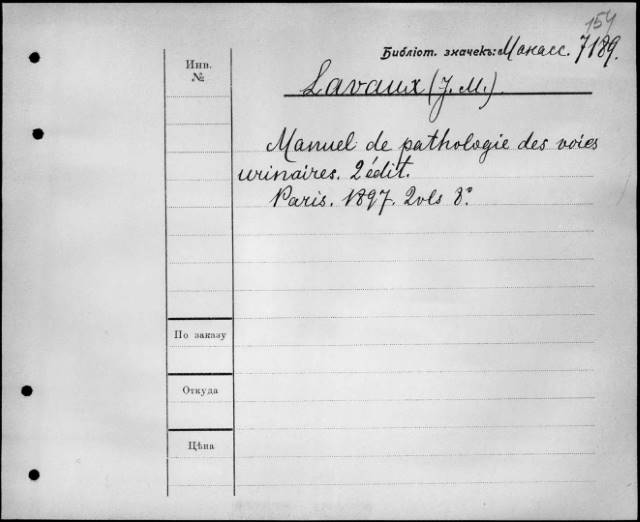 154
Библіот. значекъ: Монасс. 7189.
Инв.
№
Lavaux (J. M.)
Manuel de pathologie des voies
urinaires. 2 édit.
Paris. 1897. 2 vls 8°
По заказу
Откуда
Цѣна